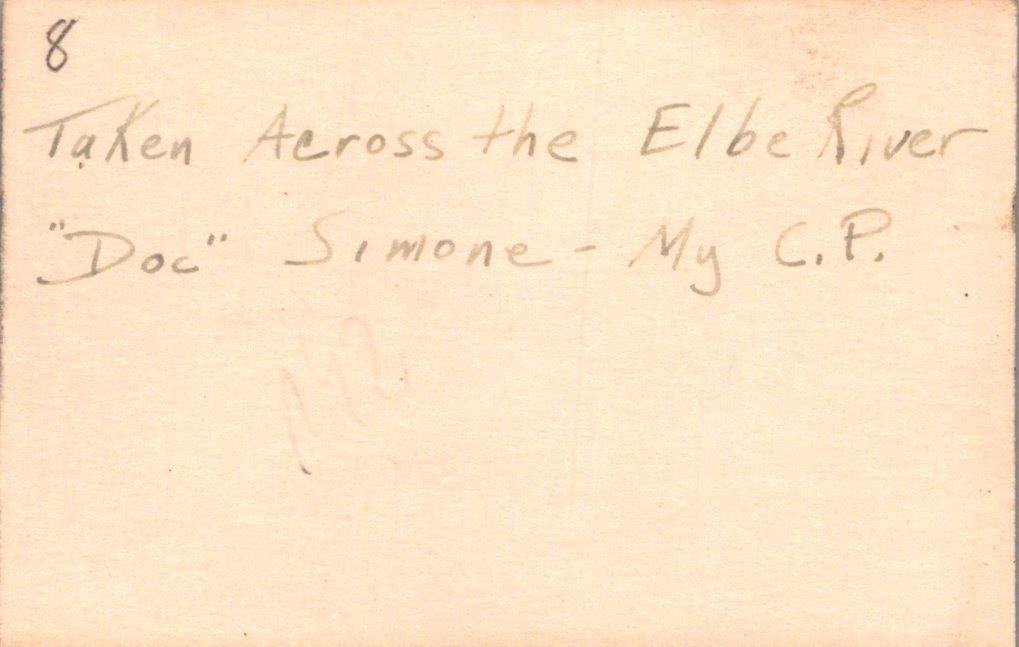 8
Taken Across the Elbe River
"Doc" Simone - My C.P.